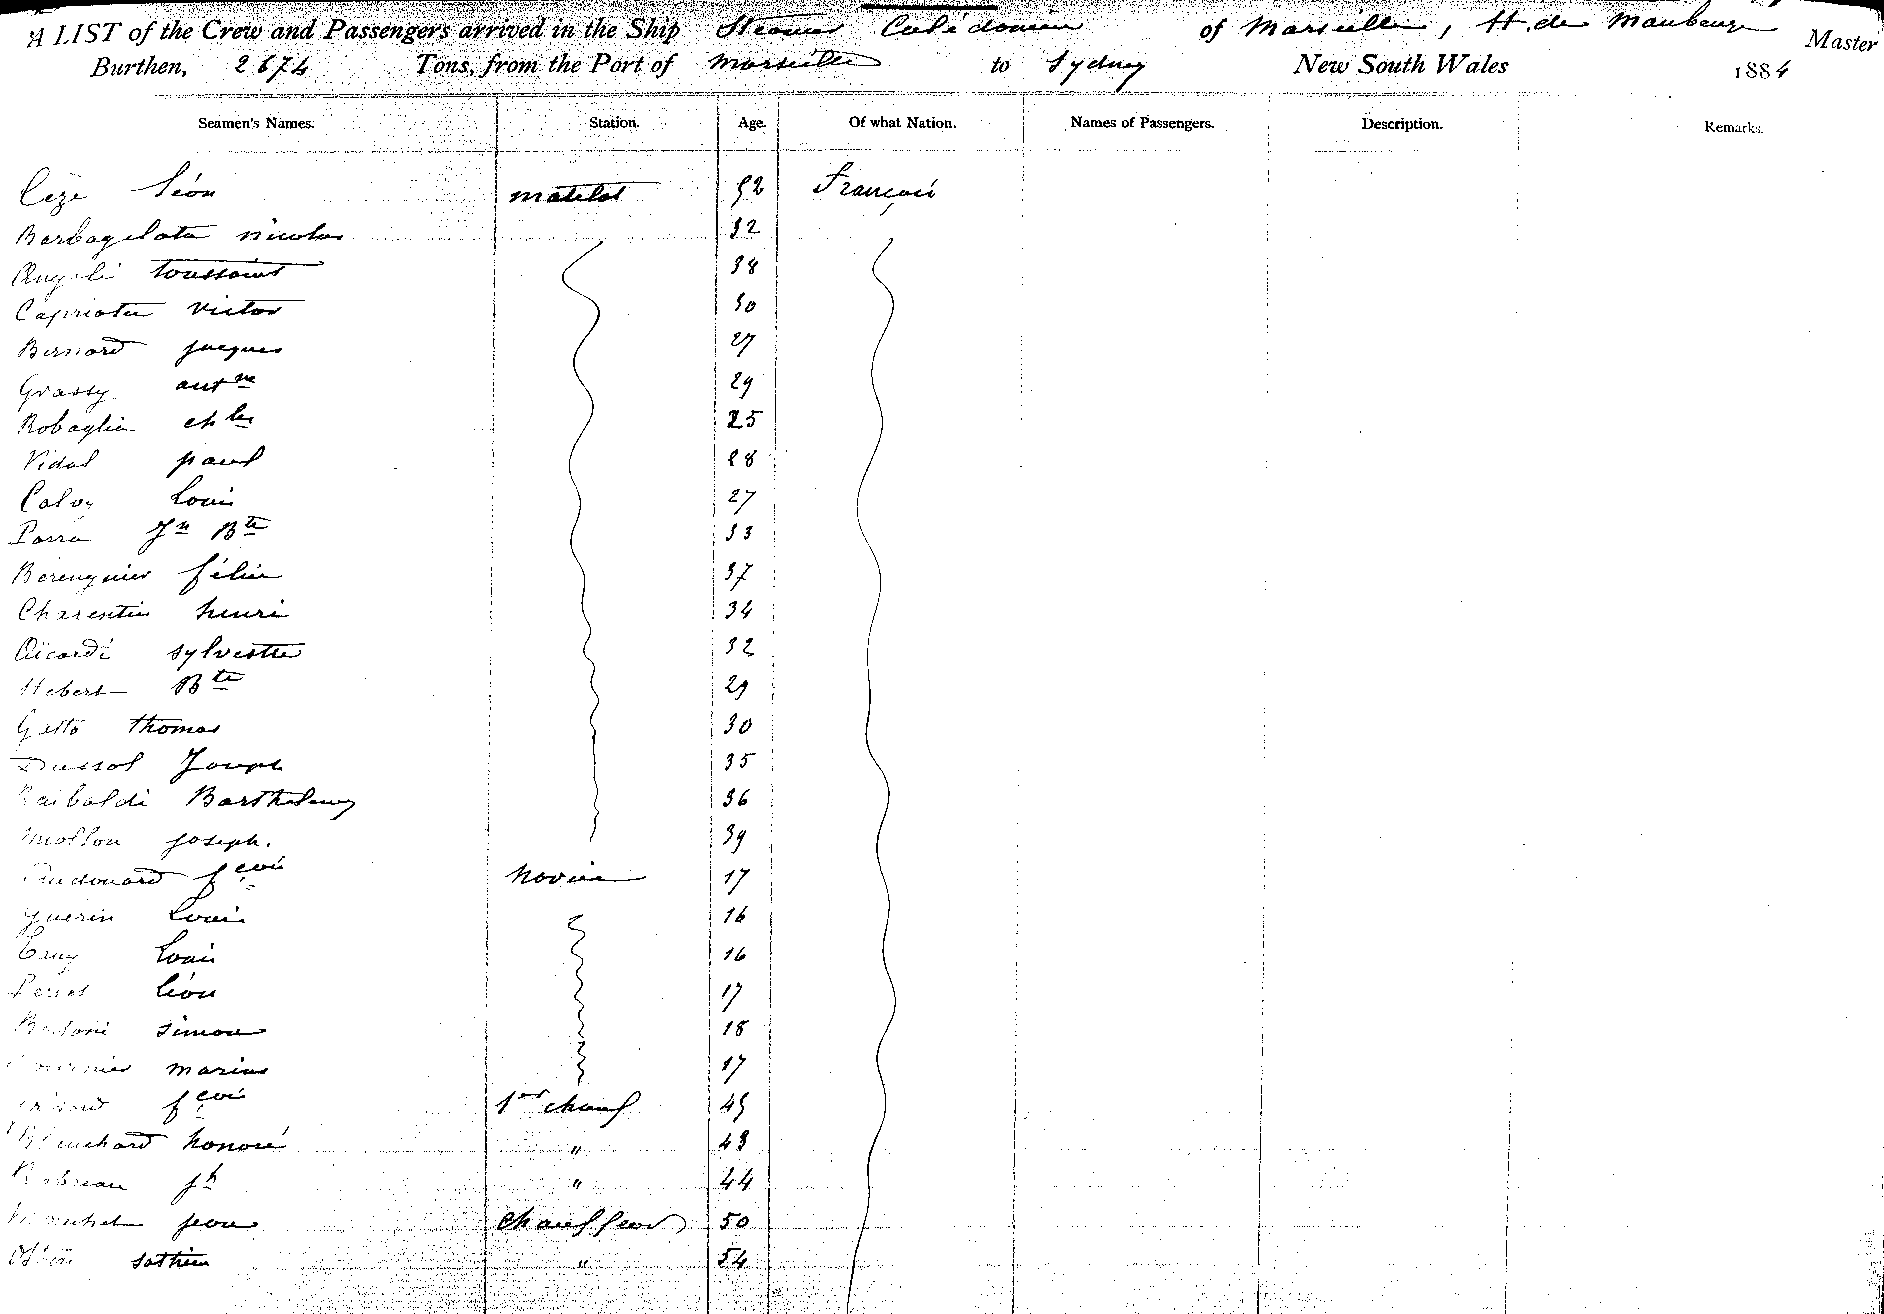 A LIST of the Crew and Passengers arrived in the Ship Steamer Calédonien of Marseille, H. de Maubeuge Master
Burthen, 2674 Tons, from the Port of Marseille to Sydney New South Wales 1884
Seamen's Names. Station. Age. Of what Nation. Names of Passengers. Description. Remarks.
Cèze Léon matelot 52 Français
Barbagelata nicolas 32
Angeli toussaint 38
Capriata victor 30
Bernard jacques 27
Grassy ant ne 29
Robaglia ch les 25
Vidal paul 28
Calvy Louis 27
Parra Jn Bte 33
Berenguier félix 37
Charentin henri 34
Aïcardi sylvestre 32
Hebert Bte 29
Gatto thomas 30
Dussol Joseph 35
Raibaldi Barthelemy 36
mollon joseph. 39
Audouard fçois novice 17
Guerin Louis 16
Louis 16
Perret Léon 17
simon 18
marius 17
fçois 1er chauf 45
Blanchard honoré " 43
jh " 44
jean chauffeur 50
" 54